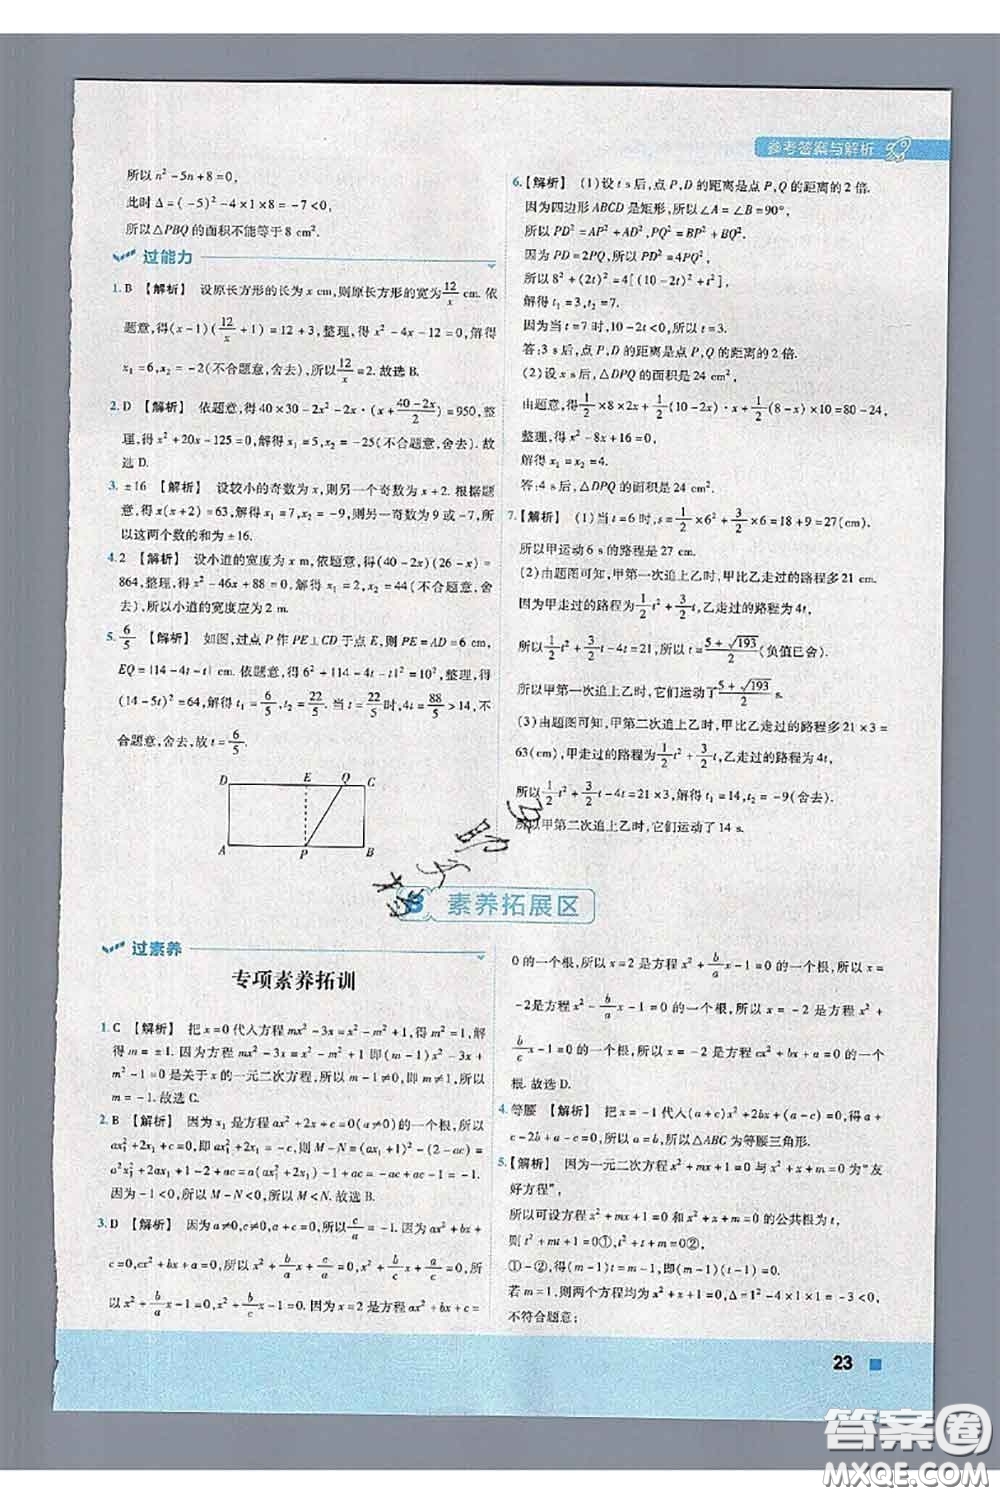 参考答案与解析
所以 n²-5n+8=0,
此时 Δ=(-5)²-4×1×8=-7<0,
所以△PBQ 的面积不能等于 8 cm².
过能力
1. B 【解析】 设原长方形的长为 x cm,则原长方形的宽为 12/x cm. 依
题意,得(x-1)(12/x+1)=12+3,整理,得 x²-4x-12=0,解得
x₁=6,x₂=-2(不合题意,舍去),所以 12/x=2. 故选 B.
2. D 【解析】 依题意,得 40×30-2x²-2x·(x+(40-2x)/2)=950,整
理,得 x²+20x-125=0,解得 x₁=5,x₂=-25(不合题意,舍去). 故
选 D.
3. ±16 【解析】 设较小的奇数为 x,则另一个奇数为 x+2. 根据题
意,得 x(x+2)=63,解得 x₁=7,x₂=-9,则另一奇数为 9 或-7,所
以这两个数的和为±16.
4. 2 【解析】 设小道的宽度为 x m,依题意,得(40-2x)(26-x)=
864,整理,得 x²-46x+88=0,解得 x₁=2,x₂=44(不合题意,舍
去),所以小道的宽度应为 2 m.
5. 6/5 【解析】 如图,过点 P 作 PE⊥CD 于点 E,则 PE=AD=6 cm,
EQ=|14-4t-t| cm. 依题意,得 6²+|14-4t-t|²=10²,整理,得
(14-5t)²=64,解得 t₁=6/5,t₂=22/5. 当 t=22/5 时,4t=88/5>14,不
合题意,舍去,故 t=6/5.
D E Q C
A P B
6. 【解析】 (1)设 t s 后,点 P,D 的距离是点 P,Q 的距离的 2 倍.
因为四边形 ABCD 是矩形,所以∠A=∠B=90°,
所以 PD²=AP²+AD²,PQ²=BP²+BQ².
因为 PD=2PQ,所以 PD²=4PQ²,
所以 8²+(2t)²=4[(10-2t)²+(8-t)²],
解得 t₁=3,t₂=7.
因为当 t=7 时,10-2t<0,所以 t=3.
答:3 s 后,点 P,D 的距离是点 P,Q 的距离的 2 倍.
(2)设 x s 后,△DPQ 的面积是 24 cm².
由题意,得 1/2×8×2x+1/2(10-2x)·x+1/2(8-x)×10=80-24,
整理,得 x²-8x+16=0,
解得 x₁=x₂=4.
答:4 s 后,△DPQ 的面积是 24 cm².
7. 【解析】 (1)当 t=6 时,s=1/2×6²+3/2×6=18+9=27(cm),
所以甲运动 6 s 的路程是 27 cm.
(2)由题图可知,甲第一次追上乙时,甲比乙走过的路程多 21 cm.
因为甲走过的路程为 1/2t²+3/2t,乙走过的路程为 4t,
所以 1/2t²+3/2t-4t=21,所以 t=(5+√193)/2(负值已舍).
所以甲第一次追上乙时,它们运动了 (5+√193)/2 s.
(3)由题图可知,甲第二次追上乙时,甲比乙走过的路程多 21×3=
63(cm),甲走过的路程为 1/2t²+3/2t,乙走过的路程为 4t,
所以 1/2t²+3/2t-4t=21×3,解得 t₁=14,t₂=-9(舍去).
所以甲第二次追上乙时,它们运动了 14 s.
B 素养拓展区
过素养
专项素养拓训
1. C 【解析】 把 x=0 代入方程 mx²-3x=x²-m²+1,得 m²=1,解
得 m=±1. 因为方程 mx²-3x=x²-m²+1 即(m-1)x²-3x+
m²-1=0 是关于 x 的一元二次方程,所以 m-1≠0,即 m≠1,所以
m=-1. 故选 C.
2. B 【解析】 因为 x₁ 是方程 ax²+2x+c=0(a≠0)的一个根,所以
ax₁²+2x₁+c=0,即 ax₁²+2x₁=-c,则 M-N=(ax₁+1)²-(2-ac)=
a²x₁²+2ax₁+1-2+ac=a(ax₁²+2x₁)-1+ac=-ac+ac-1=-1.
因为-1<0,所以 M-N<0,所以 M<N. 故选 B.
3. D 【解析】 因为 a≠0,c≠0,a+c=0,所以 c/a=-1. 因为 ax²+bx+
c=0,cx²+bx+a=0,所以 x²+b/a x+c/a=0,x²+b/c x+a/c=0,所
以 x²+b/a x-1=0,x²-b/a x-1=0. 因为 x=2 是方程 ax²+bx+c=
0 的一个根,所以 x=2 是方程 x²+b/a x-1=0 的一个根,所以 x=
-2是方程 x²-b/a x-1=0 的一个根,即 x=-2 是方程 x²+
b/c x-1=0 的一个根,所以 x=-2 是方程 cx²+bx+a=0 的一个
根. 故选 D.
4. 等腰 【解析】 把 x=-1 代入(a+c)x²+2bx+(a-c)=0,得 a+
c-2b+a-c=0,所以 a=b,所以△ABC 为等腰三角形.
5. 【解析】 因为一元二次方程 x²+mx+1=0 与 x²+x+m=0 为“友
好方程”,
所以可设方程 x²+mx+1=0 和 x²+x+m=0 的公共根为 t,
则 t²+mt+1=0①,t²+t+m=0②,
①-②,得(m-1)t=m-1,即(m-1)(t-1)=0.
若 m=1,则两个方程均为 x²+x+1=0,Δ=1²-4×1×1=-3<0,
不符合题意;
23
答案圈
MXQE.COM